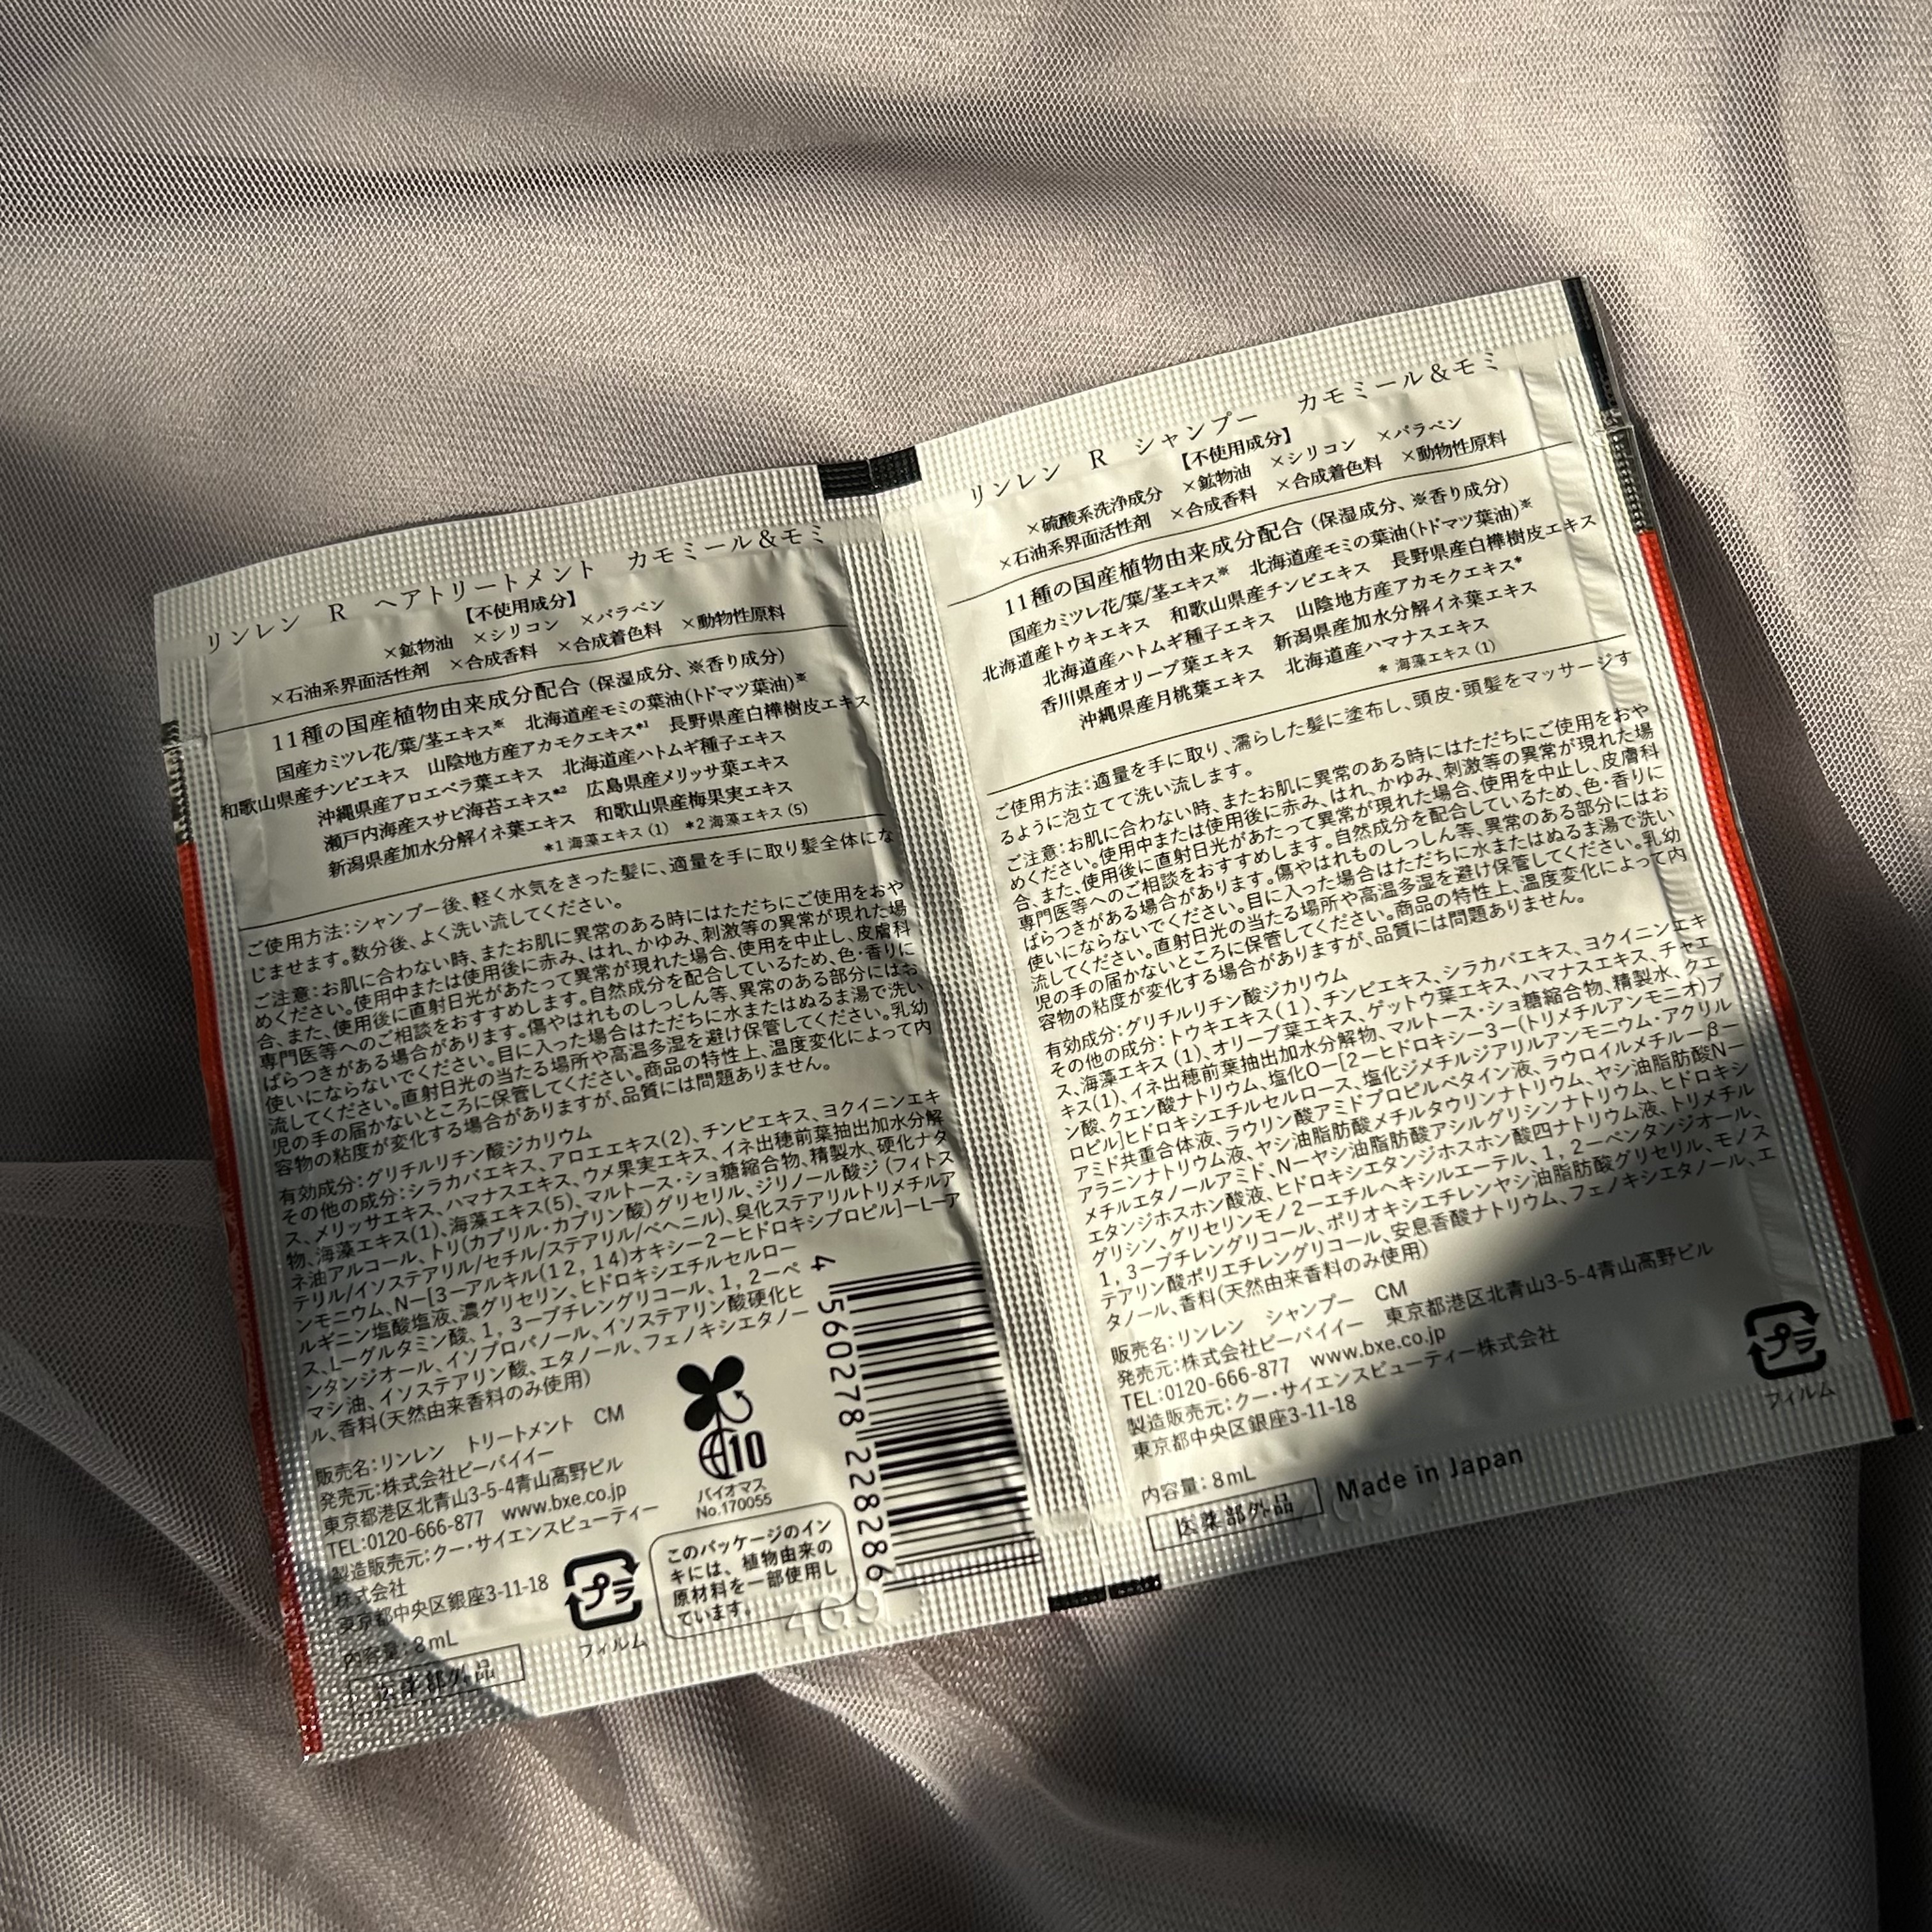 リンレン R ヘアトリートメント カモミール&モミ
【不使用成分】
×鉱物油 ×シリコン ×パラベン
×石油系界面活性剤 ×合成香料 ×合成着色料 ×動物性原料
11種の国産植物由来成分配合(保湿成分、※香り成分)
国産カミツレ花/葉/茎エキス※ 北海道産モミの葉油(トドマツ葉油)※
和歌山県産チンピエキス 山陰地方産アカモクエキス*1 長野県産白樺樹皮エキス
沖縄県産アロエベラ葉エキス 北海道産ハトムギ種子エキス
瀬戸内海産スサビ海苔エキス*2 広島県産メリッサ葉エキス
新潟県産加水分解イネ葉エキス 和歌山県産梅果実エキス
*1 海藻エキス(1) *2 海藻エキス(5)
ご使用方法:シャンプー後、軽く水気をきった髪に、適量を手に取り髪全体にな
じませます。数分後、よく洗い流してください。
ご注意:お肌に合わない時、またお肌に異常のある時にはただちにご使用をおや
めください。使用中または使用後に赤み、はれ、かゆみ、刺激等の異常が現れた場
合、また、使用後に直射日光があたって異常が現れた場合、使用を中止し、皮膚科
専門医等へのご相談をおすすめします。自然成分を配合しているため、色・香りに
ばらつきがある場合があります。傷やはれものしっしん等、異常のある部分にはお
使いにならないでください。目に入った場合はただちに水またはぬるま湯で洗い
流してください。直射日光の当たる場所や高温多湿を避け保管してください。乳幼
児の手の届かないところに保管してください。商品の特性上、温度変化によって内
容物の粘度が変化する場合がありますが、品質には問題ありません。
有効成分:グリチルリチン酸ジカリウム
その他の成分:シラカバエキス、アロエエキス(2)、チンピエキス、ヨクイニンエキ
ス、メリッサエキス、ハマナスエキス、ウメ果実エキス、イネ出穂前葉抽出加水分解
物、海藻エキス(1)、海藻エキス(5)、マルトース・ショ糖縮合物、精製水、硬化ナタ
ネ油アルコール、トリ(カプリル・カプリン酸)グリセリル、ジリノール酸ジ(フィトス
テリル/イソステアリル/セチル/ステアリル/ベヘニル)、臭化ステアリルトリメチルア
ンモニウム、N-[3-アルキル(12,14)オキシ-2-ヒドロキシプロピル]-L-ア
ルギニン塩酸塩液、濃グリセリン、ヒドロキシエチルセルロー
ス、L-グルタミン酸、1,3-ブチレングリコール、1,2-ペ
ンタンジオール、イソプロパノール、イソステアリン酸硬化ヒ
マシ油、イソステアリン酸、エタノール、フェノキシエタノー
ル、香料(天然由来香料のみ使用)
販売名:リンレン トリートメント CM
発売元:株式会社ビーバイイー
東京都港区北青山3-5-4青山高野ビル
TEL:0120-666-877 www.bxe.co.jp
製造販売元:クー・サイエンスビューティー
株式会社
東京都中央区銀座3-11-18
内容量:8mL
医薬部外品
プラ
フィルム
10
バイオマス
No.170055
このパッケージのイン
キには、植物由来の
原材料を一部使用し
ています。
4G9
4 560278 228286
リンレン R シャンプー カモミール&モミ
【不使用成分】
×硫酸系洗浄成分 ×鉱物油 ×シリコン ×パラベン
×石油系界面活性剤 ×合成香料 ×合成着色料 ×動物性原料
11種の国産植物由来成分配合(保湿成分、※香り成分)
国産カミツレ花/葉/茎エキス※ 北海道産モミの葉油(トドマツ葉油)※
北海道産トウキエキス 和歌山県産チンピエキス 長野県産白樺樹皮エキス
北海道産ハトムギ種子エキス 山陰地方産アカモクエキス*
香川県産オリーブ葉エキス 新潟県産加水分解イネ葉エキス
沖縄県産月桃葉エキス 北海道産ハマナスエキス
* 海藻エキス(1)
ご使用方法:適量を手に取り、濡らした髪に塗布し、頭皮・頭髪をマッサージす
るように泡立てて洗い流します。
ご注意:お肌に合わない時、またお肌に異常のある時にはただちにご使用をおや
めください。使用中または使用後に赤み、はれ、かゆみ、刺激等の異常が現れた場
合、また、使用後に直射日光があたって異常が現れた場合、使用を中止し、皮膚科
専門医等へのご相談をおすすめします。自然成分を配合しているため、色・香りに
ばらつきがある場合があります。傷やはれものしっしん等、異常のある部分にはお
使いにならないでください。目に入った場合はただちに水またはぬるま湯で洗い
流してください。直射日光の当たる場所や高温多湿を避け保管してください。乳幼
児の手の届かないところに保管してください。商品の特性上、温度変化によって内
容物の粘度が変化する場合がありますが、品質には問題ありません。
有効成分:グリチルリチン酸ジカリウム
その他の成分:トウキエキス(1)、チンピエキス、シラカバエキス、ヨクイニンエキ
ス、海藻エキス(1)、オリーブ葉エキス、ゲットウ葉エキス、ハマナスエキス、チャエ
キス(1)、イネ出穂前葉抽出加水分解物、マルトース・ショ糖縮合物、精製水、クエ
ン酸、クエン酸ナトリウム、塩化O-[2-ヒドロキシ-3-(トリメチルアンモニオ)プ
ロピル]ヒドロキシエチルセルロース、塩化ジメチルジアリルアンモニウム・アクリル
アミド共重合体液、ラウリン酸アミドプロピルベタイン液、ラウロイルメチル-β-
アラニンナトリウム液、ヤシ油脂肪酸メチルタウリンナトリウム、ヤシ油脂肪酸N-
メチルエタノールアミド、N-ヤシ油脂肪酸アシルグリシンナトリウム、ヒドロキシ
エタンジホスホン酸液、ヒドロキシエタンジホスホン酸四ナトリウム液、トリメチル
グリシン、グリセリンモノ2-エチルヘキシルエーテル、1,2-ペンタンジオール、
1,3-ブチレングリコール、ポリオキシエチレンヤシ油脂肪酸グリセリル、モノス
テアリン酸ポリエチレングリコール、安息香酸ナトリウム、フェノキシエタノール、エ
タノール、香料(天然由来香料のみ使用)
販売名:リンレン シャンプー CM
発売元:株式会社ビーバイイー 東京都港区北青山3-5-4青山高野ビル
TEL:0120-666-877 www.bxe.co.jp
製造販売元:クー・サイエンスビューティー株式会社
東京都中央区銀座3-11-18
内容量:8mL
医薬部外品 Made in Japan
プラ
フィルム